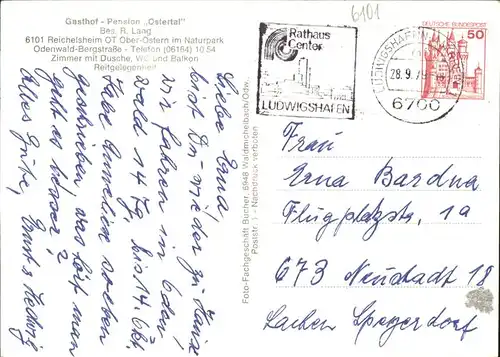 Gasthof - Pension „Ostertal"
Bes. R. Lang
6101 Reichelsheim OT Ober-Ostern im Naturpark
Odenwald-Bergstraße - Telefon (06164) 10 54
Zimmer mit Dusche, WC und Balkon
Reitgelegenheit
Liebe Erna,
bist Du wieder zu Hause
wir fahren in Oden,
wald 14 Tg. bis 14. Okt.
habe Annelise soeben
geschrieben was hört man
geht es besser?
Alles Gute, Ernst & Hedwig
Foto-Fachgeschäft Bücher, 6948 Waldmichelbach/Odw.
Poststr. - Nachdruck verboten
6101
Rathaus
Center
LUDWIGSHAFEN
LUDWIGSHAFEN
28.9.79
6700
DEUTSCHE BUNDESPOST
50
Frau
Erna Bardna
Flugplatzstr. 1a
673 Neustadt 18
Lachen Speyerdorf